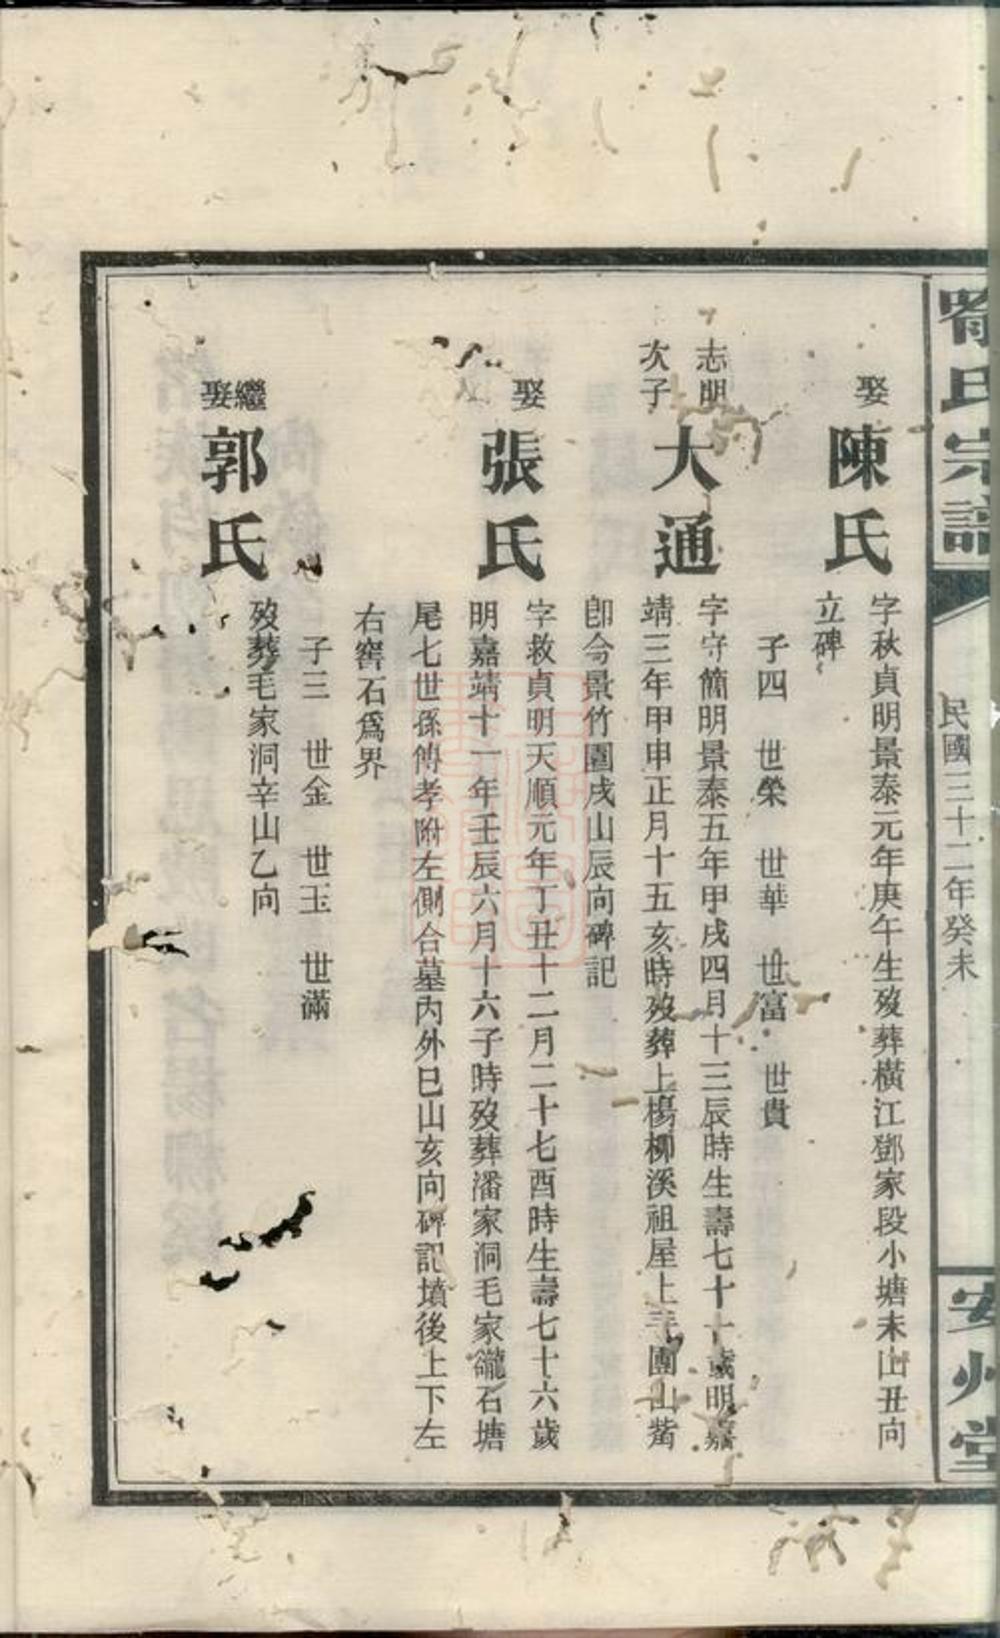 氏宗譜
民國三十二年癸未
安州堂
娶陳氏
字秋貞明景泰元年庚午生歿葬橫江鄧家段小塘未山丑向
立碑
子四 世榮 世華 世富 世貴
志明次子大通
字守簡明景泰五年甲戌四月十三辰時生壽七十十歲明嘉
靖三年甲申正月十五亥時歿葬上楊柳溪祖屋上手團山觜
卽今景竹園戌山辰向碑記
娶張氏
字救貞明天順元年丁丑十二月二十七酉時生壽七十六歲
明嘉靖十一年壬辰六月十六子時歿葬潘家洞毛家石塘
尾七世孫傳孝附左側合墓內外巳山亥向碑記墳後上下左
右窖石爲界
子三 世金 世玉 世滿
繼娶郭氏
歿葬毛家洞辛山乙向